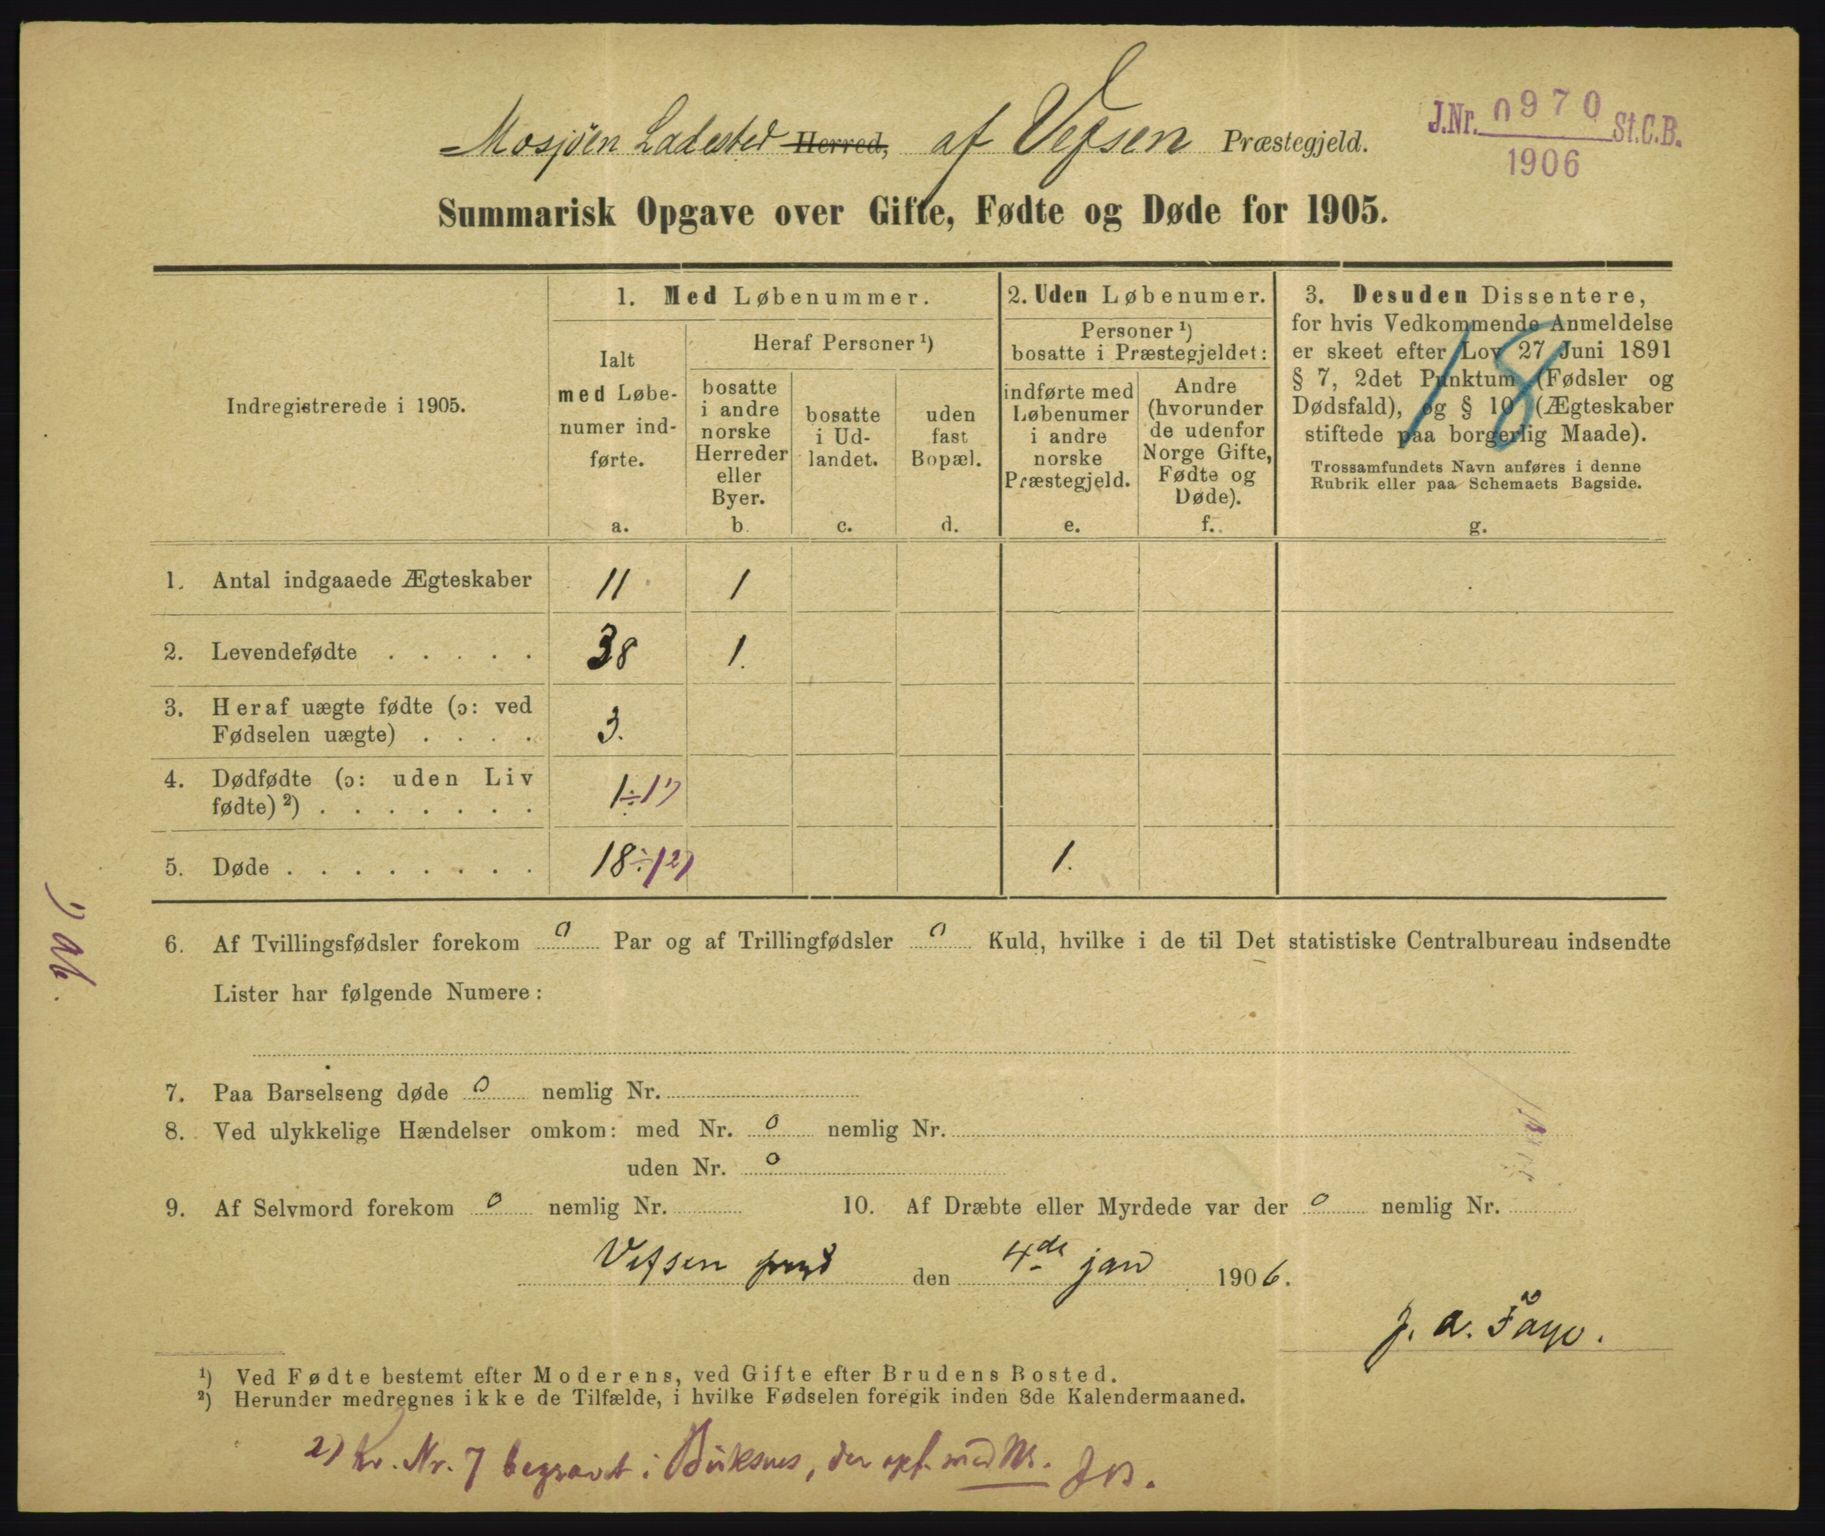 Mosjøen Ladested Herred, af Vefsen Præstegjeld.
J.Nr. 0970 St.C.B.
1906
Summarisk Opgave over Gifte, Fødte og Døde for 1905.
Indregistrerede i 1905.
1. Med Løbenummer.
Ialt
med Løbe-
numer ind-
førte.
a.
Heraf Personer ¹)
bosatte
i andre
norske
Herreder
eller
Byer.
b
bosatte
i Ud-
landet.
c.
uden
fast
Bopæl.
d.
2. Uden Løbenumer.
Personer ¹)
bosatte i Præstegjeldet:
indførte med
Løbenumer
i andre
norske
Præstegjeld.
e.
Andre
(hvorunder
de udenfor
Norge Gifte,
Fødte og
Døde).
f.
3. Desuden Dissentere,
for hvis Vedkommende Anmeldelse
er skeet efter Lov 27 Juni 1891
§ 7, 2det Punktum (Fødsler og
Dødsfald), og § 10 (Ægteskaber
stiftede paa borgerlig Maade).
Trossamfundets Navn anføres i denne
Rubrik eller paa Schemaets Bagside.
g.
18
1. Antal indgaaede Ægteskaber 11 1
2. Levendefødte . . . . . 38 1.
3. Heraf uægte fødte (ɔ: ved
Fødselen uægte) . . . . 3.
4. Dødfødte (ɔ: uden Liv
fødte) ²) . . . . . . . 1÷1¹)
5. Døde . . . . . . . . 18÷1²) 1.
6. Af Tvillingsfødsler forekom 0 Par og af Trillingfødsler 0 Kuld, hvilke i de til Det statistiske Centralbureau indsendte
Lister har følgende Numere:
7. Paa Barselseng døde 0 nemlig Nr.
8. Ved ulykkelige Hændelser omkom: med Nr. 0 nemlig Nr.
uden Nr. 0
9. Af Selvmord forekom 0 nemlig Nr.
10. Af Dræbte eller Myrdede var der 0 nemlig Nr.
Vefsen den 4de jan 1906.
J. A.
¹) Ved Fødte bestemt efter Moderens, ved Gifte efter Brudens Bosted.
²) Herunder medregnes ikke de Tilfælde, i hvilke Fødselen foregik inden 8de Kalendermaaned.
2) Kv. Nr. 7 begravet i Buksnes, der opf. med Nr.